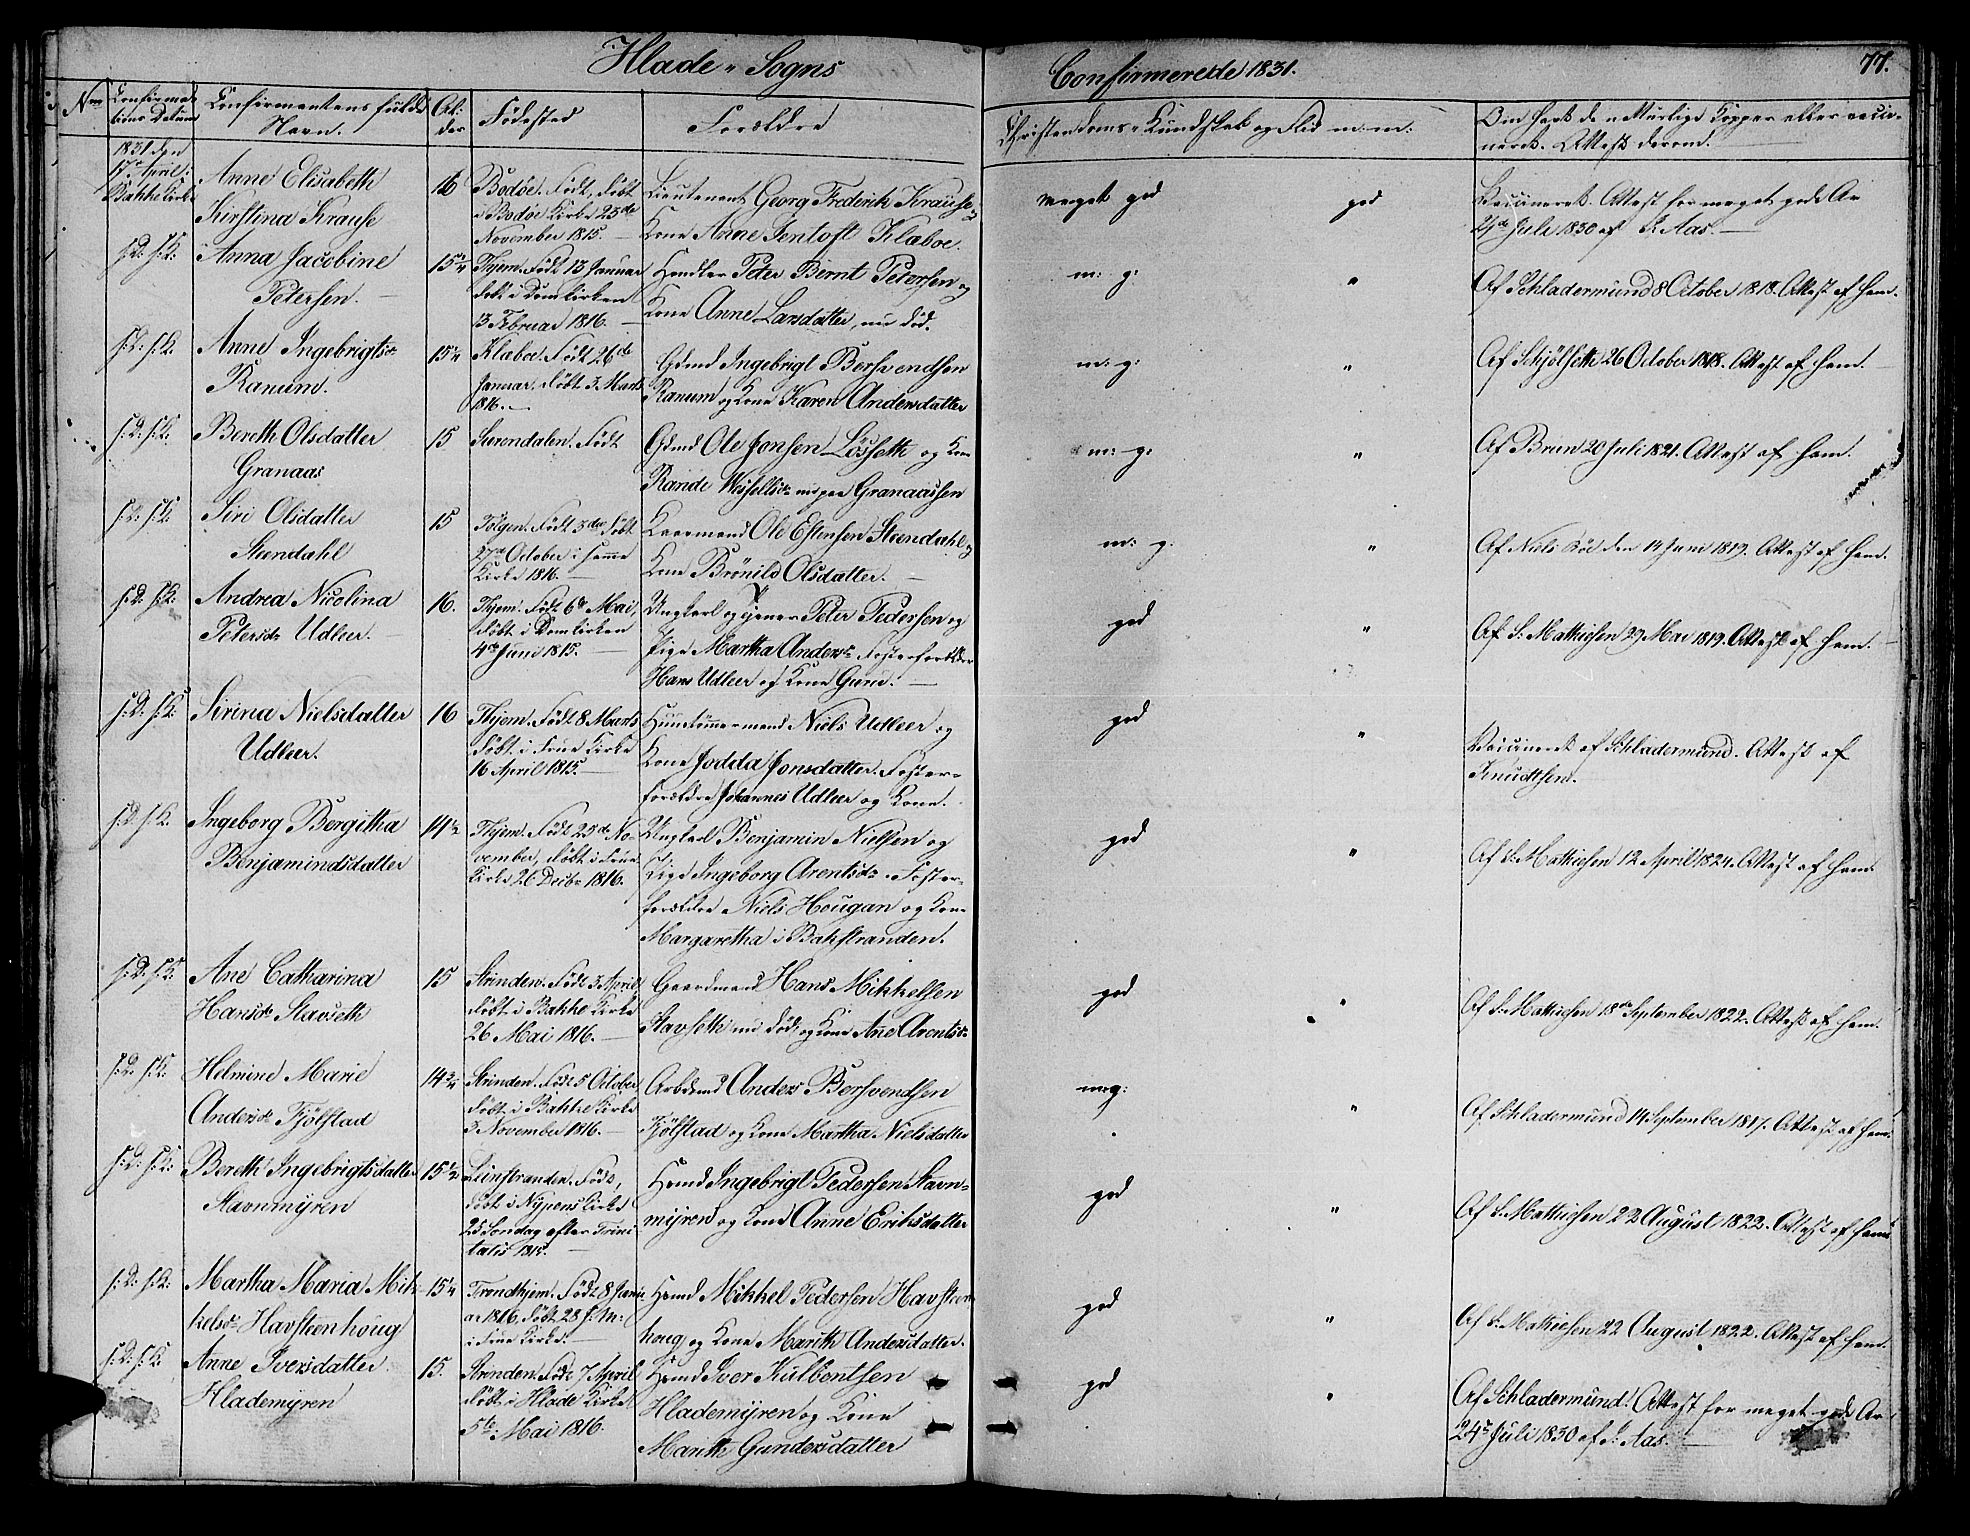 Hlade " Sogns
Confirmerede 1831.
77.
Nro
Confirmations Datum
Confirmantens fulde Navn.
Alder
Fødested
Forældre
Christendoms-Kundskab og Flid m: m:
Om havt de naturlige Kopper eller vaccineret. Attest derom.
1831 den
17de April:
Bakke Kirke
Anne Elisabeth
Kirstina Krause
16
Bodøe. Født, døbt
i Bodøe Kirke 23de
November 1815.
Lieutenant Georg Frederik Krause og
Kone Anne Jentoft Klæboe.
meget god
god
Vaccineret. Attest for meget gode Ar
24de Juli 1830 af J: Aas.
s: D: s: K:
Anna Jacobine
Petersen.
15 1/4
Thjem. Født 13 Januar
døbt i Domkirken
13 Februar 1816.
Handler Peter Bernt Petersen og
Kone Anne Larsdatter, nu død.
m: g:
"
Af Schladermund 8 October 1818. Attest af ham.
s: D: s: K:
Anne Ingebrigtsdr
Ranum.
15 1/4
Klæboe. Født 26de
Januar, døbt 3. Marts
1816.
Gdmd Ingebrigt Bersvendsen
Ranum og Kone Karen Andersdatter
m: g:
"
Af Schjølseth 26 October 1818. Attest af ham.
s: D: s: K:
Bereth Olsdatter
Granaas
15
Surendalen. Født
Gdmd Ole Jonsen Løsseth og Kone
Rande Wessellsdr nu paa Granaassen
m: g:
"
Af Brun 20 Juli 1821. Attest af ham.
s: D: s: K:
Siri Olsdatter
Steendahl
15
Tolgen. Født 3die døbt
27de October i samme
Kirke 1816.
Leermand Ole Estensen Steendahl og
Kone Brønild Olsdatter.
m: g:
"
Af Niels Röe den 14 Juni 1819. Attest af ham.
s: D: s: K:
Andrea Nicolina
Petersdr Udleer.
16.
Thjem. Født 6te Mai,
døbt i Domkirken
4de Juni 1815.
Ungkarl og tjener Peter Pedersen og
Pige Martha Andersdr Fosterforældre
Hans Udleer og Kone Guru.
god
"
Af S: Mathiesen 29 Mai 1819. Attest af ham.
s: D: s: K:
Sirina Nielsdatter
Udleer.
16
Thjem. Født 8 Marts
døbt i Frue Kirke
16 April 1815.
Huustømmermand Niels Udleer og
Kone Jodda Jonsdatter. Foster-
forældre Johannes Udleer og Kone.
god
"
Vaccineret af Schladermund. Attest af
Knudtsen.
s: D: s: K:
Ingeborg Bergitha
Benjamindsdatter
14 1/2
Thjem. Født 25de No-
vember, døbt i Frue
Kirke 26 Decbr 1816.
Ungkarl Benjamin Nielsen og
Pige Ingeborg Arentsdr. Foster-
forældre Niels Hougan og Kone
Margaretha i Bakstranden.
god
"
Af S: Mathiesen 12 April 1824. Attest af ham.
s: D: s: K:
Ane Catharina
Hansdr Stavseth
15
Strinden. Født 3 April,
døbt i Bakke Kirke
26 Mai 1816.
Gaardmand Hans Mikkelsen
Stavseth nu død og Kone Ane Arentsdr
god
"
Af S: Mathiesen 18de September 1822. Attest af ham.
s: D: s: K:
Helmine Marie
Andersdr Fjölstad
14 3/4
Strinden. Født 5 October,
døbt i Bakke Kirke
3 November 1816.
Arbdsmd Anders Bersvendsen
Fjölstad og Kone Martha Nielsdatter
m: g:
"
Af Schladermund 14 September 1817. Attest af ham.
s: D: s: K:
Bereth Ingebrigtsdatter
Stavnmyren
15 1/2
Leinstranden. Født,
døbt i Nypens Kirke
25 Søndag efter Trini-
tatis 1815.
Hsmd Ingebrigt Pedersen Stavn-
myren og Kone Anne Eriksdatter
god
"
Af S: Mathiesen 22 August 1822. Attest af ham
s: D: s: K:
Martha Maria Mik-
kelsdr Havsteenhoug
15 1/4
Trondhjem. Født 8 Janu-
ar 1816, døbt 28 s: M:
i Frue Kirke.
Hsmd Mikkel Pedersen Havsteen-
houg og Kone Marith Andersdatter.
god
"
Af S: Mathiesen 22 August 1822. Attest af ham.
s: D: s: K:
Anne Iversdatter
Hlademyren
15.
Strinden. Født 7 April
døbt i Hlade Kirke
5te Mai 1816.
Hsmd Iver Kulbentsen
Hlademyren og Kone
Marith Gundersdatter
god
"
Af Schladermund. Attest for meget gode Ar
24de Juli 1830 af J: Aas.